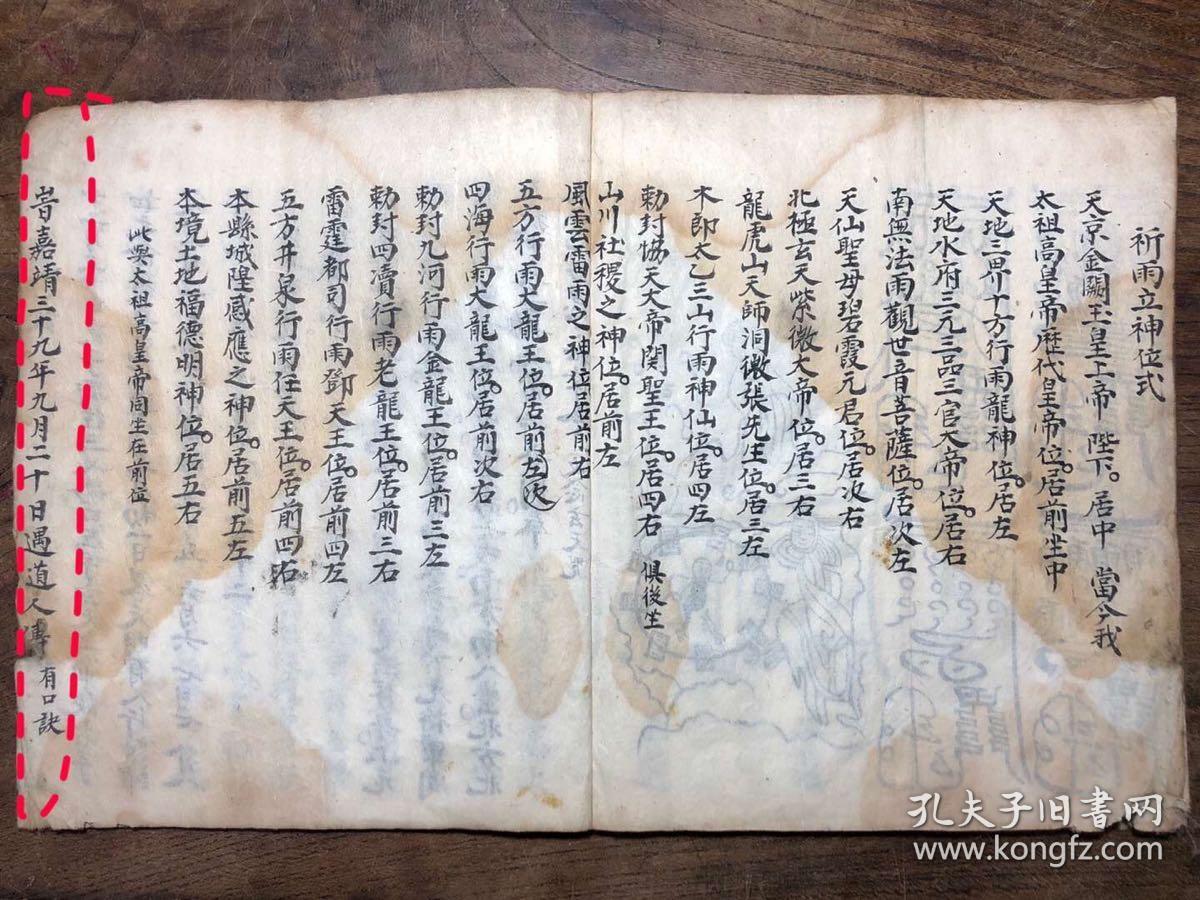 祈雨立神位式
天京金闕玉皇上帝 陛下。居中 當今我
太祖高皇帝歷代皇帝位。居前坐中
天地三界十方行雨龍神位。居左
天地水府三元三品三官大帝位。居右
南無法雨觀世音菩薩位。居次左
天仙聖母碧霞元君位。居次右
北極玄天紫微大帝位。居三右
龍虎山天師洞微張先生位居三左
木郎太乙三山行雨神仙位。居四左
勅封協天大帝関聖王位。居四右 俱後坐
山川社稷之神位。居前左
風雲雷雨之神位居前右
五方行雨大龍王位。居前左次
四海行雨大龍王位。居前次右
勅封九河行雨金龍王位。居前三左
勅封四瀆行雨老龍王位。居前三右
雷霆都司行雨鄧天王位。居前四左
五方井泉行雨任天王位。居前四右
本縣城隍感應之神位。居前五左
本境土地福德明神位。居五右
此與太祖高皇帝同坐在前位
昔嘉靖三十九年九月二十日遇道人傳 有口訣
孔夫子旧書网
www.kongfz.com